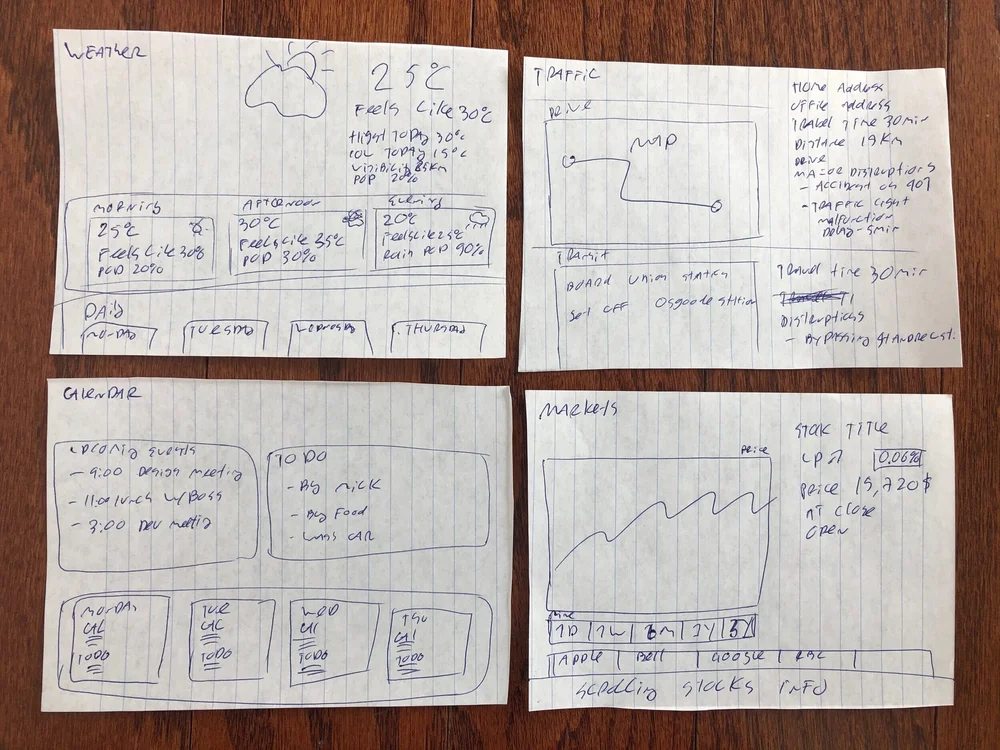 WEATHER
25°C
Feels Like 30°C
High TODAY 30°C
LOW TODAY 15°C
POP 20%
MORNING
25°C
Feels Like 30%
POP 20%
AFTERNOON
30°C
Feels Like 35°C
POP 30%
Evening
20°C
Feels Like 25°C
Rain POP 90%
DAILY
MONDAY
TUESDAY
WEDNESDAY
THURSDAY
TRAFFIC
DRIVE
MAP
Home Address
Office Address
Travel Time 30 min
Distance 19 Km
Drive
MAJOR DISRUPTIONS
- ACCIDENT ON 401
- TRAFFIC Light
malfunction
Delay - 5min
TRANSIT
BOARD UNION STATION
Get OFF Osgoode Station
Travel time 30 min
Disruptions
- BYPASSING
CALENDAR
UPCOMING EVENTS
- 9:00 Design Meeting
- 11:00 lunch w/ Boss
- 3:00 Dev meeting
TO DO
- By Milk
- By Food
- CAR
MONDAY
CAL
TODO
TUE
CAL
TODO
WED
CAL
TODO
THU
CAL
TODO
MARKETS
Price
Time
1D 1W 1Y 5Y
STOCK TITLE
0.06%
Price 19,720$
AT Close
OPEN
APPLE Bell Google
SCROLLING STOCKS INFO